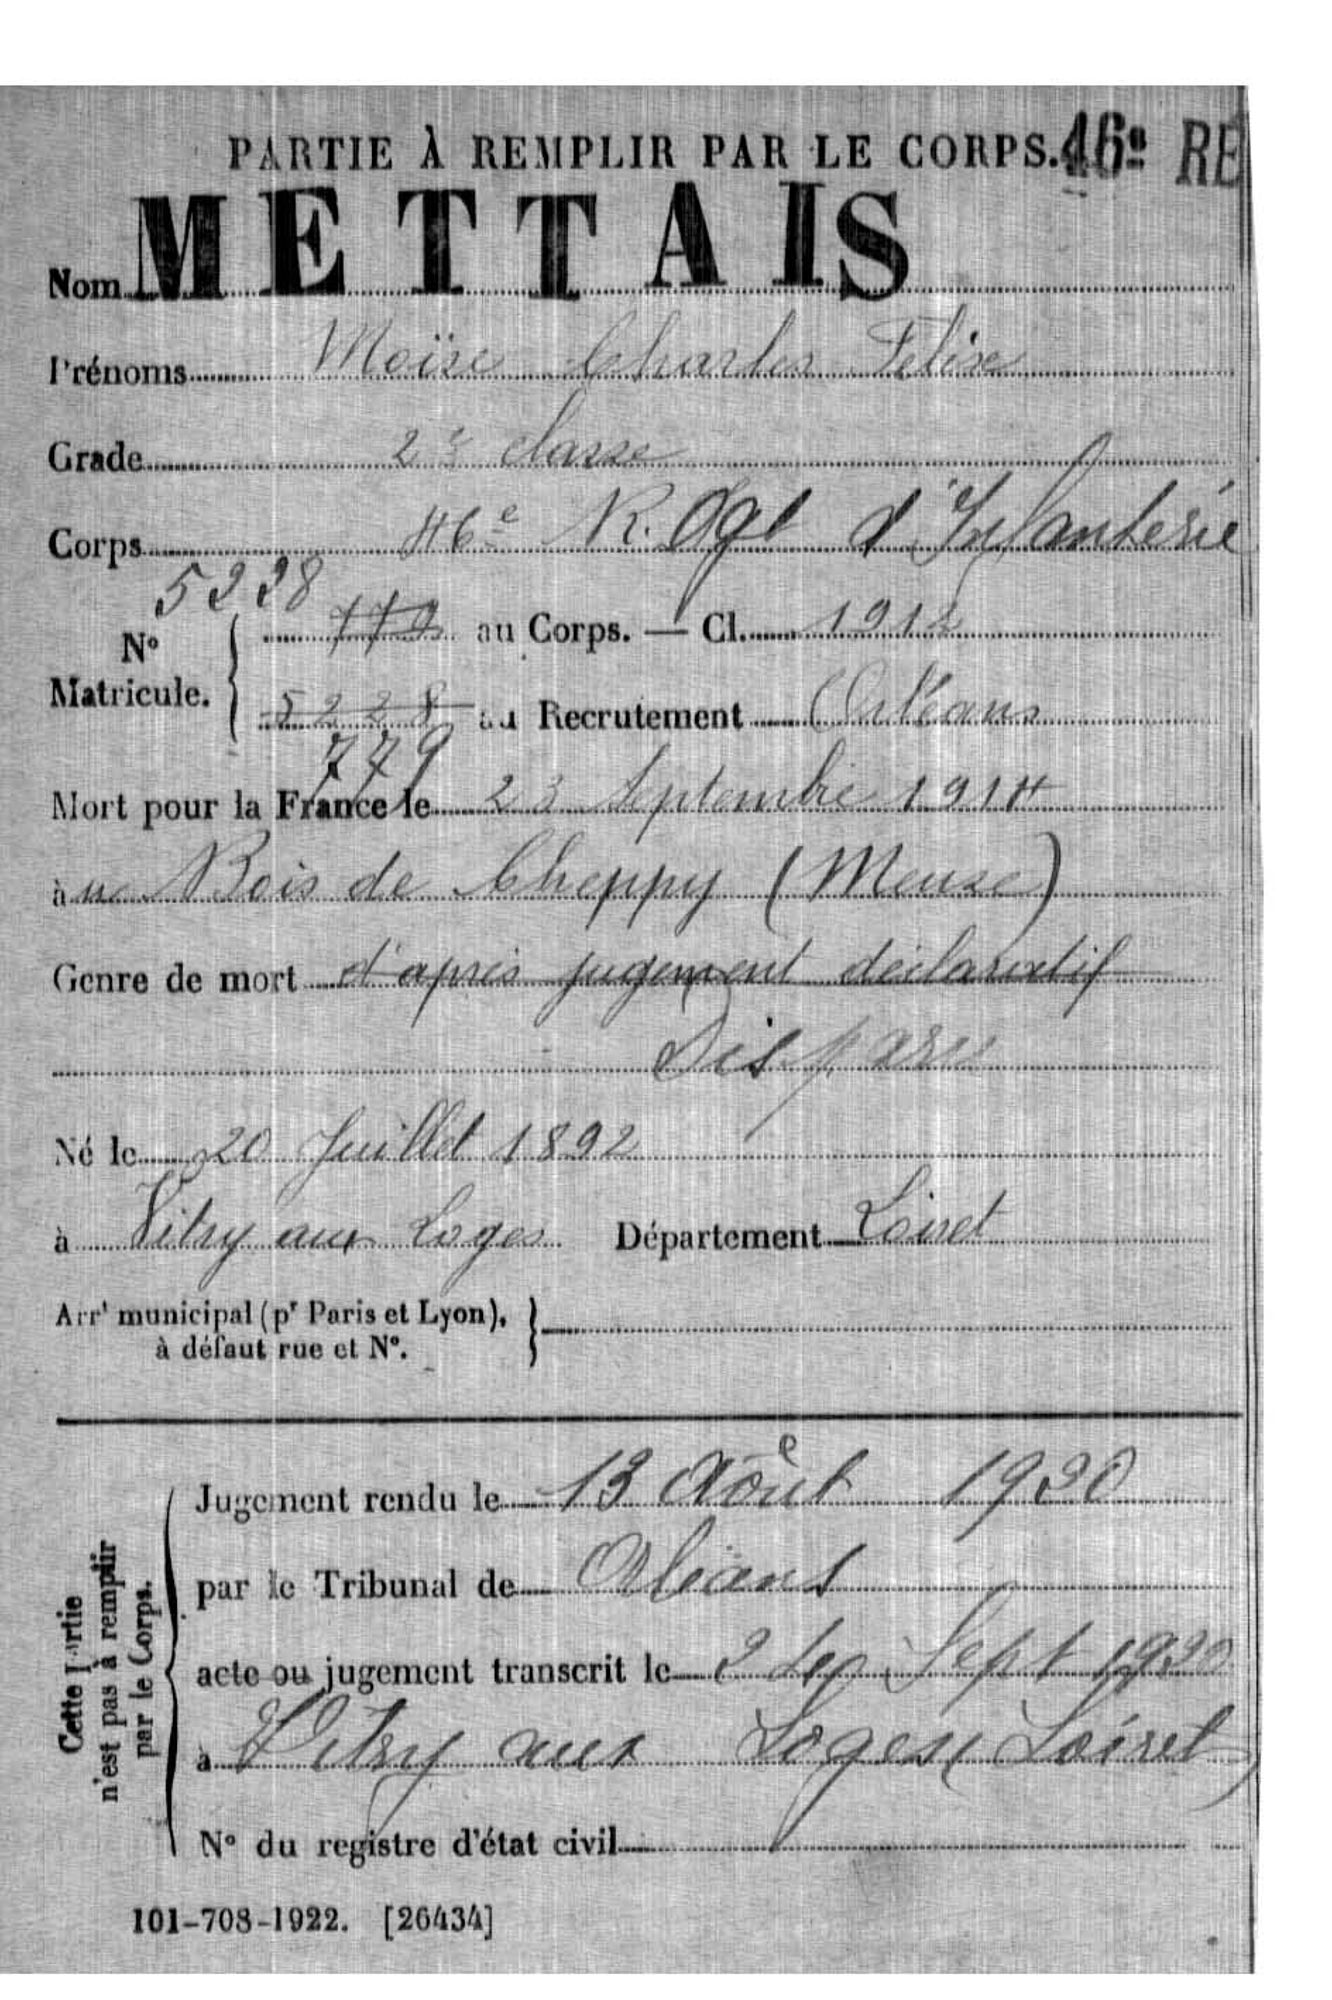 PARTIE À REMPLIR PAR LE CORPS. 46e RE
Nom METTAIS
Prénoms Moïse Charles Felix
Grade 2e classe
Corps 46e R. Rgt d'Infanterie
5228
N° Matricule. 779 au Corps. — Cl. 1912
5228 au Recrutement Orléans
779
Mort pour la France le 23 Septembre 1914
à u Bois de Cheppy (Meuse)
Genre de mort d'après jugement déclaratif
Disparu
Né le 20 Juillet 1892
à Vitry aux Loges Département Loiret
Arrt municipal (pr Paris et Lyon), à défaut rue et N°.
Cette Partie n'est pas à remplir par le Corps.
Jugement rendu le 13 Août 1920
par le Tribunal de Orléans
acte ou jugement transcrit le 2 Sept 1920
à Vitry aux Loges (Loiret)
N° du registre d'état civil
101-708-1922. [26434]